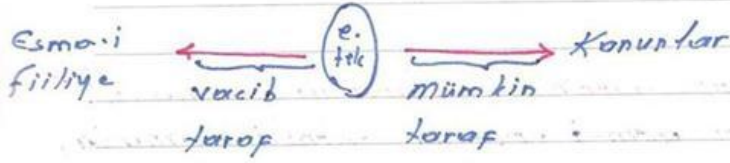 Esma-i
fiiliye
vacib
taraf
e.
tek
mümkin
taraf
Kanunlar